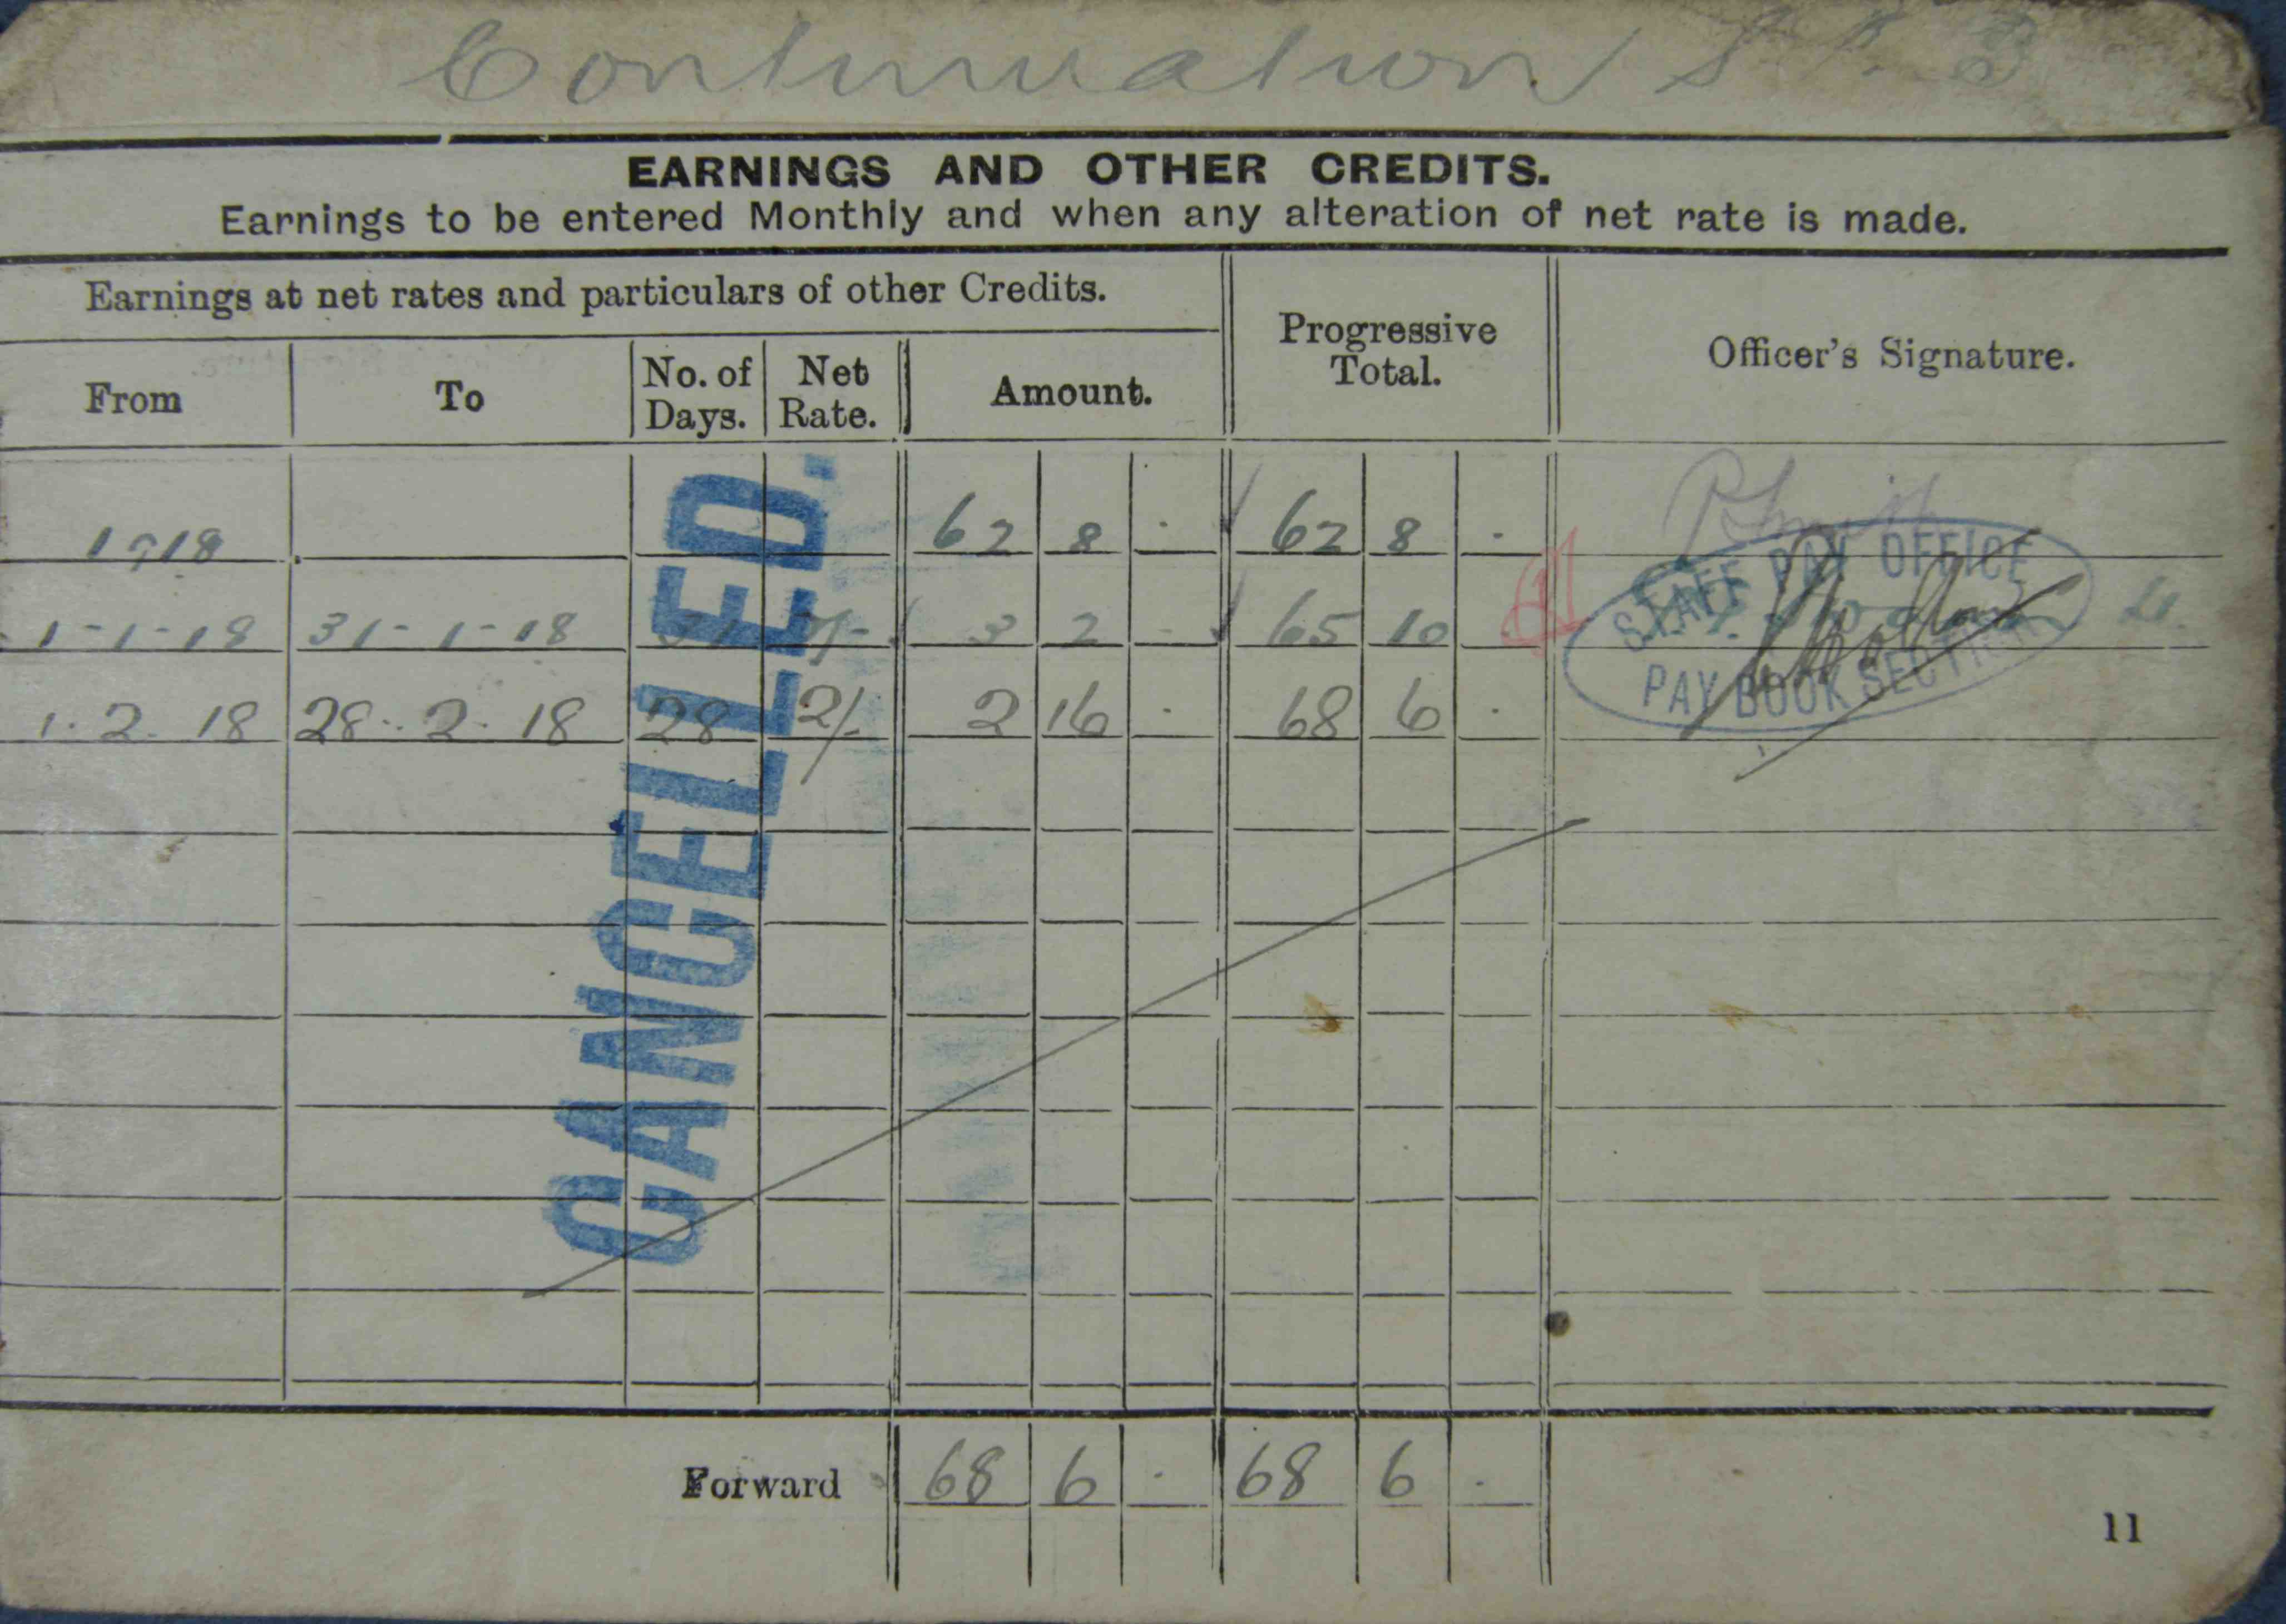 Continuation
EARNINGS AND OTHER CREDITS.
Earnings to be entered Monthly and when any alteration of net rate is made.
Earnings at net rates and particulars of other Credits.
Progressive Total.
Officer's Signature.
From To No. of Days. Net Rate. Amount.
1918 62 8 · 62 8 ·
1-1-18 31-1-18 31 2/- 3 2 - 65 10 ·
1.2.18 28.2.18 28 2/- 2 16 · 68 6 ·
STAFF PAY OFFICE
PAY BOOK SECTION
CANCELLED.
Forward 68 6 · 68 6 ·
11